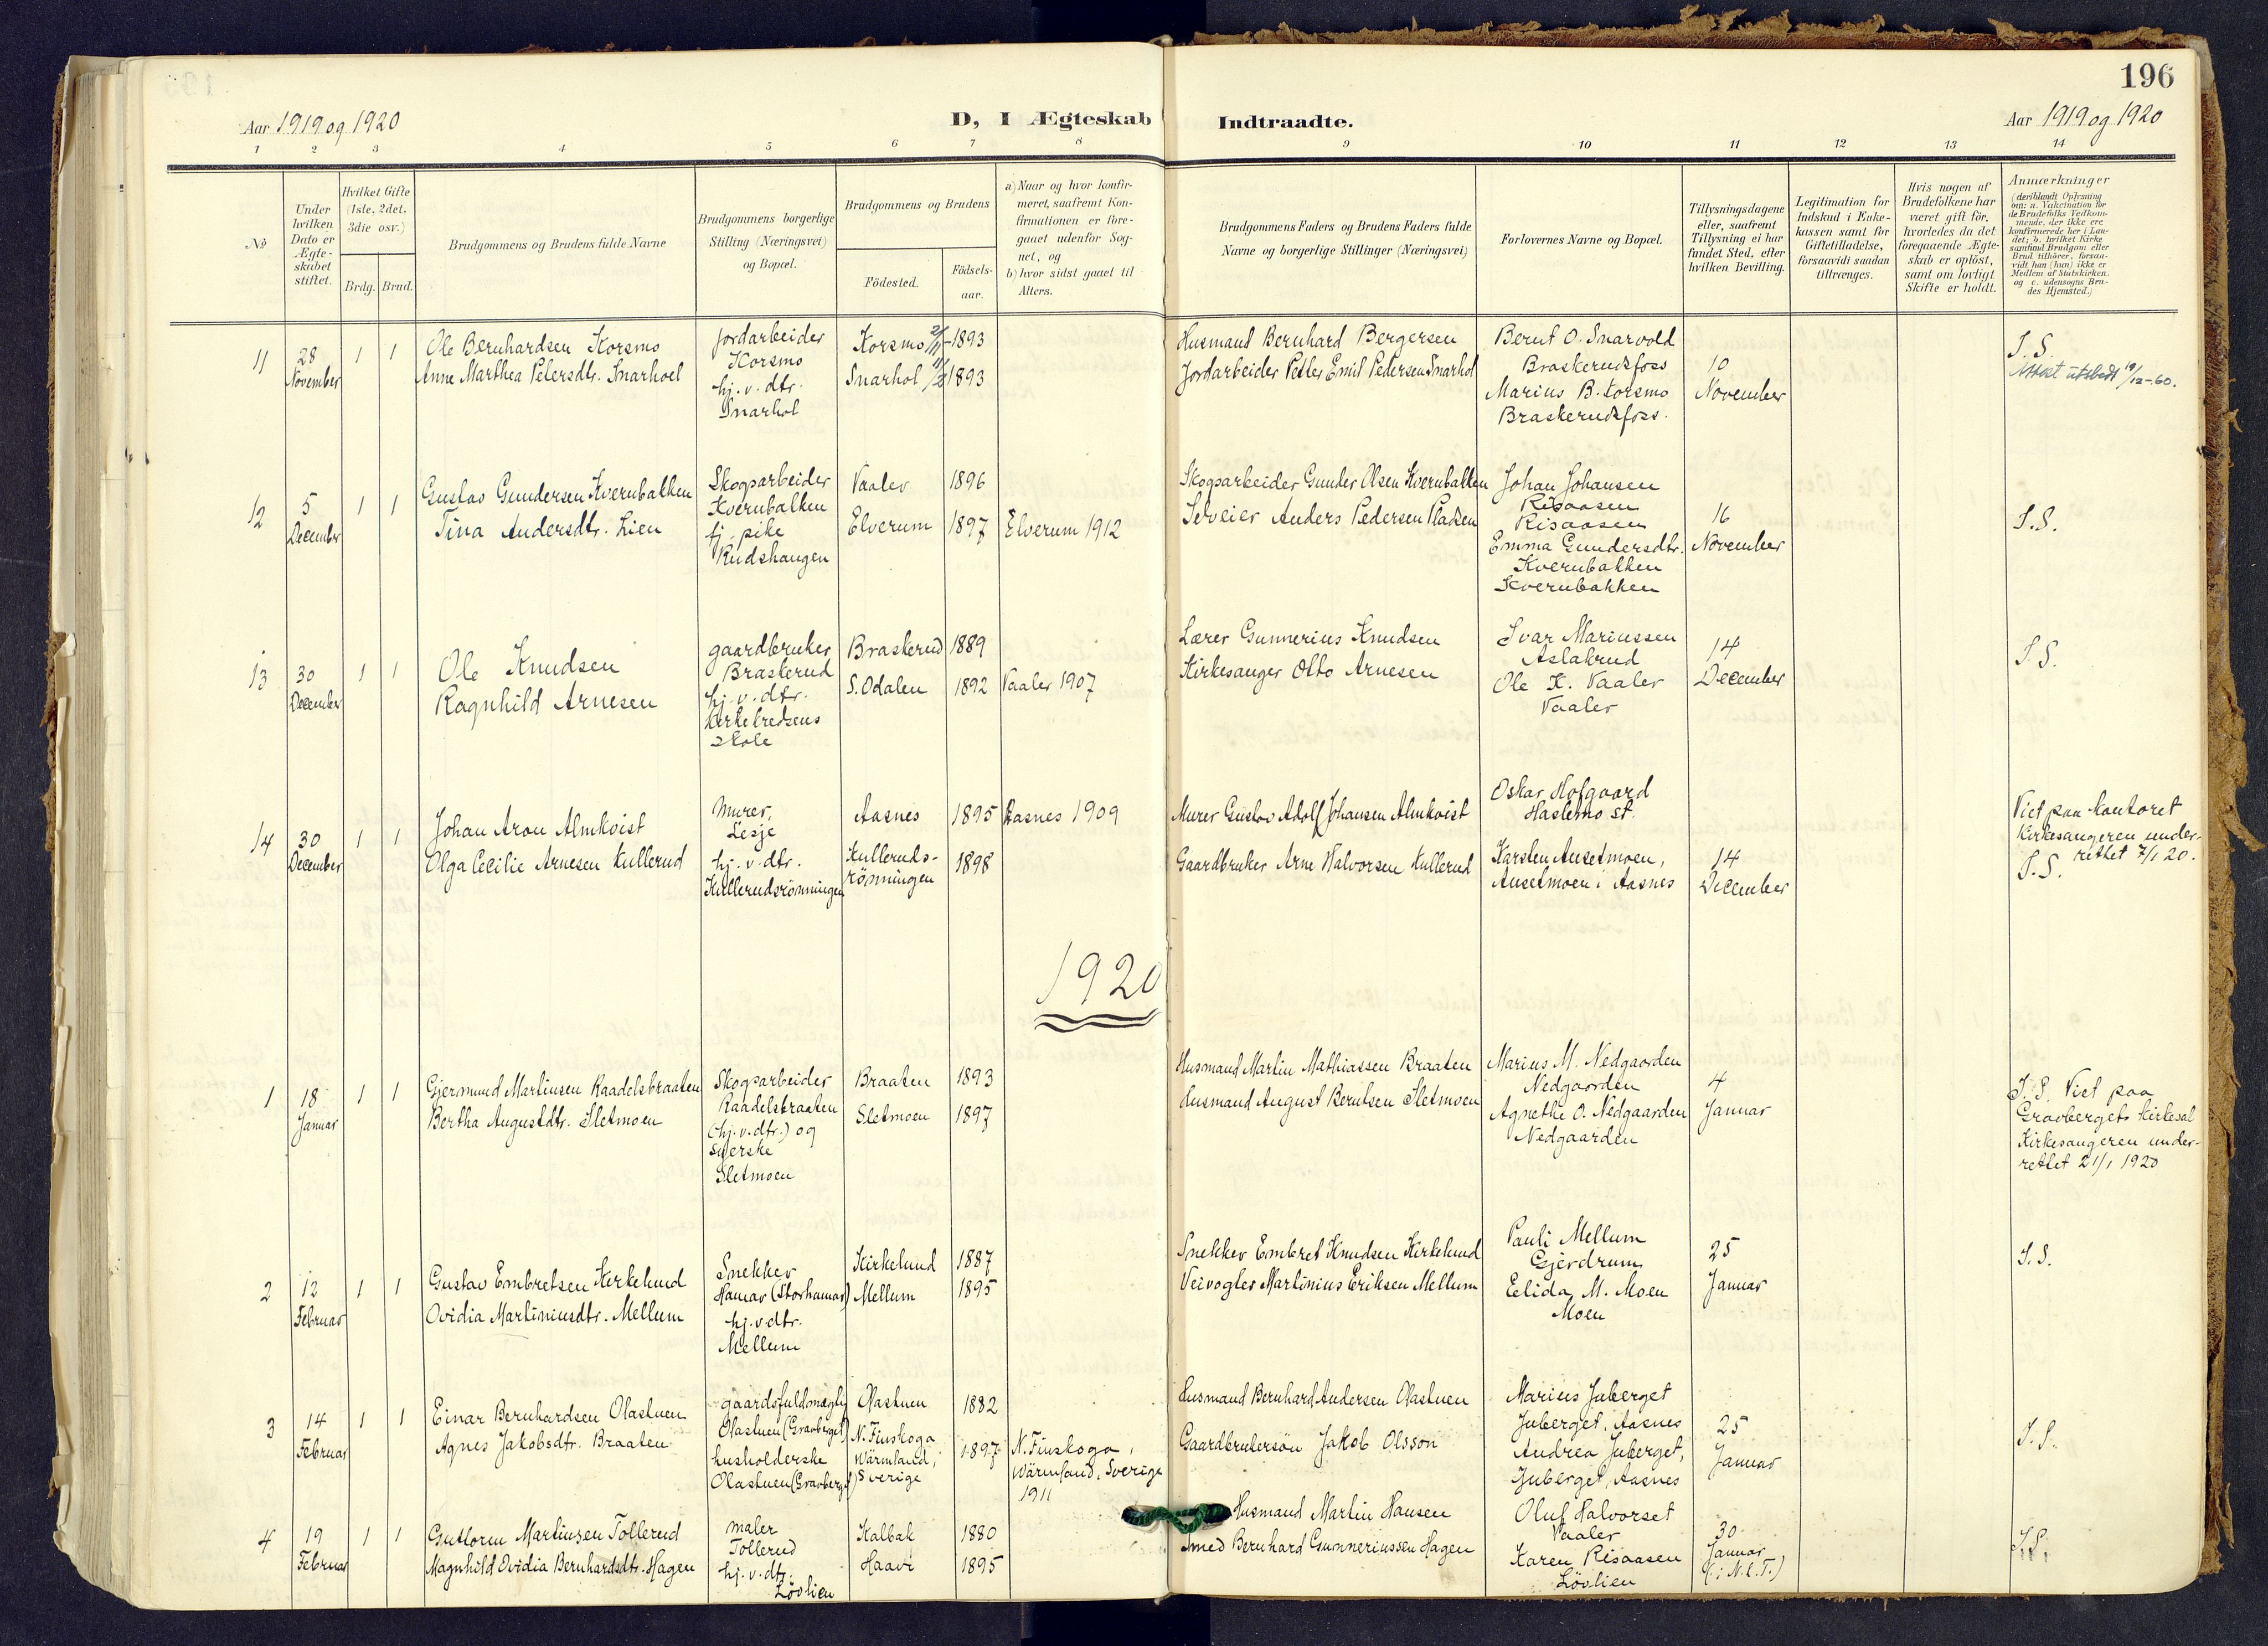 196
Aar 1919 og 1920
D, I Ægteskab Indtraadte.
Aar 1919 og 1920
1 2 3 4 5 6 7 8 9 10 11 12 13 14
No
Under
hvilken
Dato er
Ægte-
skabet
stiftet.
Hvilket Gifte
(1ste, 2det,
3die osv.)
Brdg. Brud.
Brudgommens og Brudens fulde Navne
Brudgommens borgerlige
Stilling (Næringsvei)
og Bopæl.
Brudgommens og Brudens
Födested.
Födsels-
aar.
a) Naar og hvor konfir-
meret, saafremt Kon-
firmationen er fore-
gaaet udenfor Sog-
net, og
b) hvor sidst gaaet til
Alters.
Brudgommens Faders og Brudens Faders fulde
Navne og borgerlige Stillinger (Næringsvei)
Forlovernes Navne og Bopæl.
Tillysningsdagene
eller, saafremt
Tillysning ei har
fundet Sted, efter
hvilken Bevilling.
Legitimation for
Indskud i Enke-
kassen samt for
Giftetilladelse,
forsaavidt saadan
tiltrænges.
Hvis nogen af
Brudefolkene har
været gift för,
hvorledes da det
foregaaende Ægte-
skab er oplöst,
samt om lovligt
Skifte er holdt.
Anmærkninger
(deriblandt Oplysning
om: a. Vakcination for
de Brudefolks Vedkom-
mende, der ikke ere
konfirmerede her i Lan-
det; b. hvilket Kirke
samfund Brudgom eller
Brud tilhörer, forsaa-
vidt han (hun) ikke er
Medlem af Statskirken.
og c. udensogns Bru-
des Hjemsted.)
11
28
November
1 1
Ole Bernhardsen Korsmo
Anne Marthea Petersdtr. Snarhoel
Jordarbeider
Korsmo
hj. v. dtr.
Snarhol
Korsmo 2/11-1893
Snarhol 11/2 1893
Husmand Bernhard Bergersen
Jordarbeider Petter Emil Pedersen Snarhol
Bernt O. Snarvold
Braskerudsfoss
Marius B. Korsmo
Braskerudsfoss.
10
November
S. S.
Attest utstedt 19/12-60.
12
5
December
1 1
Gustav Gundersen Kvernbakken
Tina Andersdtr. Lien
Skogsarbeider
Kvernbakken
tj. pike
Rudshaugen
Vaaler 1896
Elverum 1897
Elverum 1912
Skogsarbeider Gunder Olsen Kvernbakken
Selveier Anders Pedersen Pladsen
Johan Johansen
Risaasen
Risaasen
Emma Gundersdtr.
Kvernbakken
Kvernbakken
16
November
S. S.
13
30
December
1 1
Ole Knudsen
Ragnhild Arnesen
gaardbruker
Braskerud
hj. v. dtr.
Kirkekredsens
skole
Braskerud 1889
S. Odalen 1892
Vaaler 1907
Lærer Gunnerius Knudsen
Kirkesanger Otto Arnesen
Ivar Mariussen
Aslakrud
Ole K. Vaaler
Vaaler
14
December
S. S.
14
30
December
1 1
Johan Aron Almkvist
Olga Cecilie Arnesen Kullerud
Murer,
Lesje
hj. v. dtr.
Kullerudsrönningen
Aasnes 1895
Kulleruds-
rönningen 1898
Aasnes 1909
Murer Gustav Adolf Johansen Almkvist
Gaardbruker Arne Halvorsen Kullerud
Oskar Hofgaard
Haslemo st.
Karsten Anselmoen,
Anselmoen i Aasnes
14
December
Viet paa kontoret
Kirkesangeren under-
rettet 7/1 20.
S. S.
1920
1
18
Januar
1 1
Gjermund Martinsen Raadelsbraaten
Bertha Augustdtr. Sletmoen
Skogsarbeider
Raadelsbraaten
(hj. v. dtr.) og
syerske
Sletmoen
Braaten 1893
Sletmoen 1897
Husmand Martin Mathiassen Braaten
Husmand August Berntsen Sletmoen
Marius M. Nedgaarden
Nedgaarden
Agnethe O. Nedgaarden
Nedgaarden
4
Januar
S. S. Viet paa
Gravbergets kirkesal
Kirkesangeren under-
rettet 21/1 1920
2
12
Februar
1 1
Gustav Embretsen Kirkelund
Ovidia Martiniusdtr. Mellum
Snekker
Hamar (Storhamar)
hj. v dtr.
Mellum
Kirkelund 1887
Mellum 1895
Snekker Embret Knudsen Kirkelund
Veivogter Martinius Eriksen Mellum
Pauli Mellum
Gjerdrum
Eelida M. Moen
Moen
25
Januar
S. S.
3
14
Februar
1 1
Einar Bernhardsen Olastuen
Agnes Jakobsdtr. Braaten
gaardsfuldmægtig
Olastuen (Gravberget)
husholderske
Olastuen (Gravberget)
Olastuen 1882
N. Finskoga
Wärmland,
Sverige 1897
N. Finskoga,
Wärmland, Sverige
1911
Husmand Bernhard Andersen Olastuen
Gaardbrukersön Jakob Olsson
Marius Juberget
Juberget, Aasnes
Andrea Juberget,
Juberget, Aasnes
25
Januar
S. S.
4
19
Februar
1 1
Guttorm Martinsen Tollerud
Magnhild Ovidia Bernhardsdtr. Hagen
maler
Tollerud
hj. v. dtr.
Lövlien
Kalbak 1880
Haavi 1895
Husmand Martin Hansen
Smed Bernhard Gunneriussen Hagen
Oluf Halvorset
Vaaler
Karen Risaasen
Lövlien
30
Januar
(i N. l. T.)
S. S.